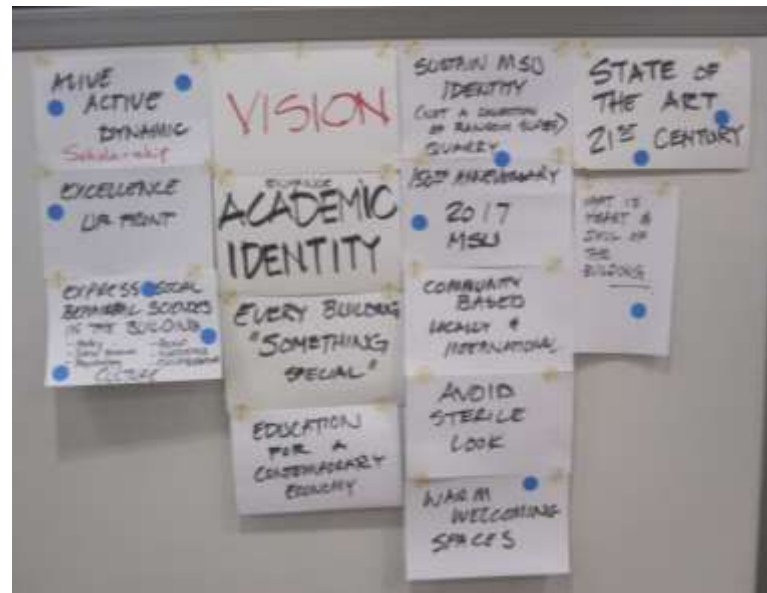 ALIVE
ACTIVE
DYNAMIC
Scholarship
EXCELLENCE
UP FRONT
EXPRESS SOCIAL
BEHAVIORAL SCIENCES
IN THE BUILDING
CULTURE
VISION
ACADEMIC
IDENTITY
EVERY BUILDING
"SOMETHING
SPECIAL"
EDUCATION
FOR A
CONTEMPORARY
ECONOMY
SUSTAIN MSU
IDENTITY
(NOT A
OF RANDOM
QUARRY
150TH ANNIVERSARY
2017
MSU
COMMUNITY
BASED
LOCALLY &
INTERNATIONAL
AVOID
STERILE
LOOK
WARM
WELCOMING
SPACES
STATE OF
THE ART
21ST CENTURY
WHAT IS
HEART &
SOUL OF
THE
BUILDING